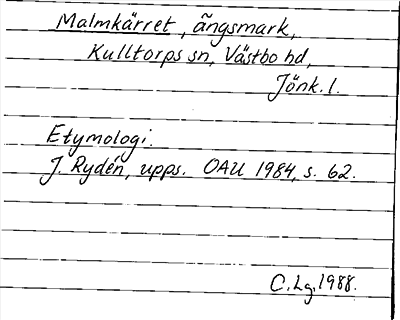 Malmkärret, ängsmark,
Kulltorps sn, Västbo hd,
Jönk. l.
Etymologi.
J. Rydén, upps. OAU 1984, s. 62.
C. Lg. 1988.